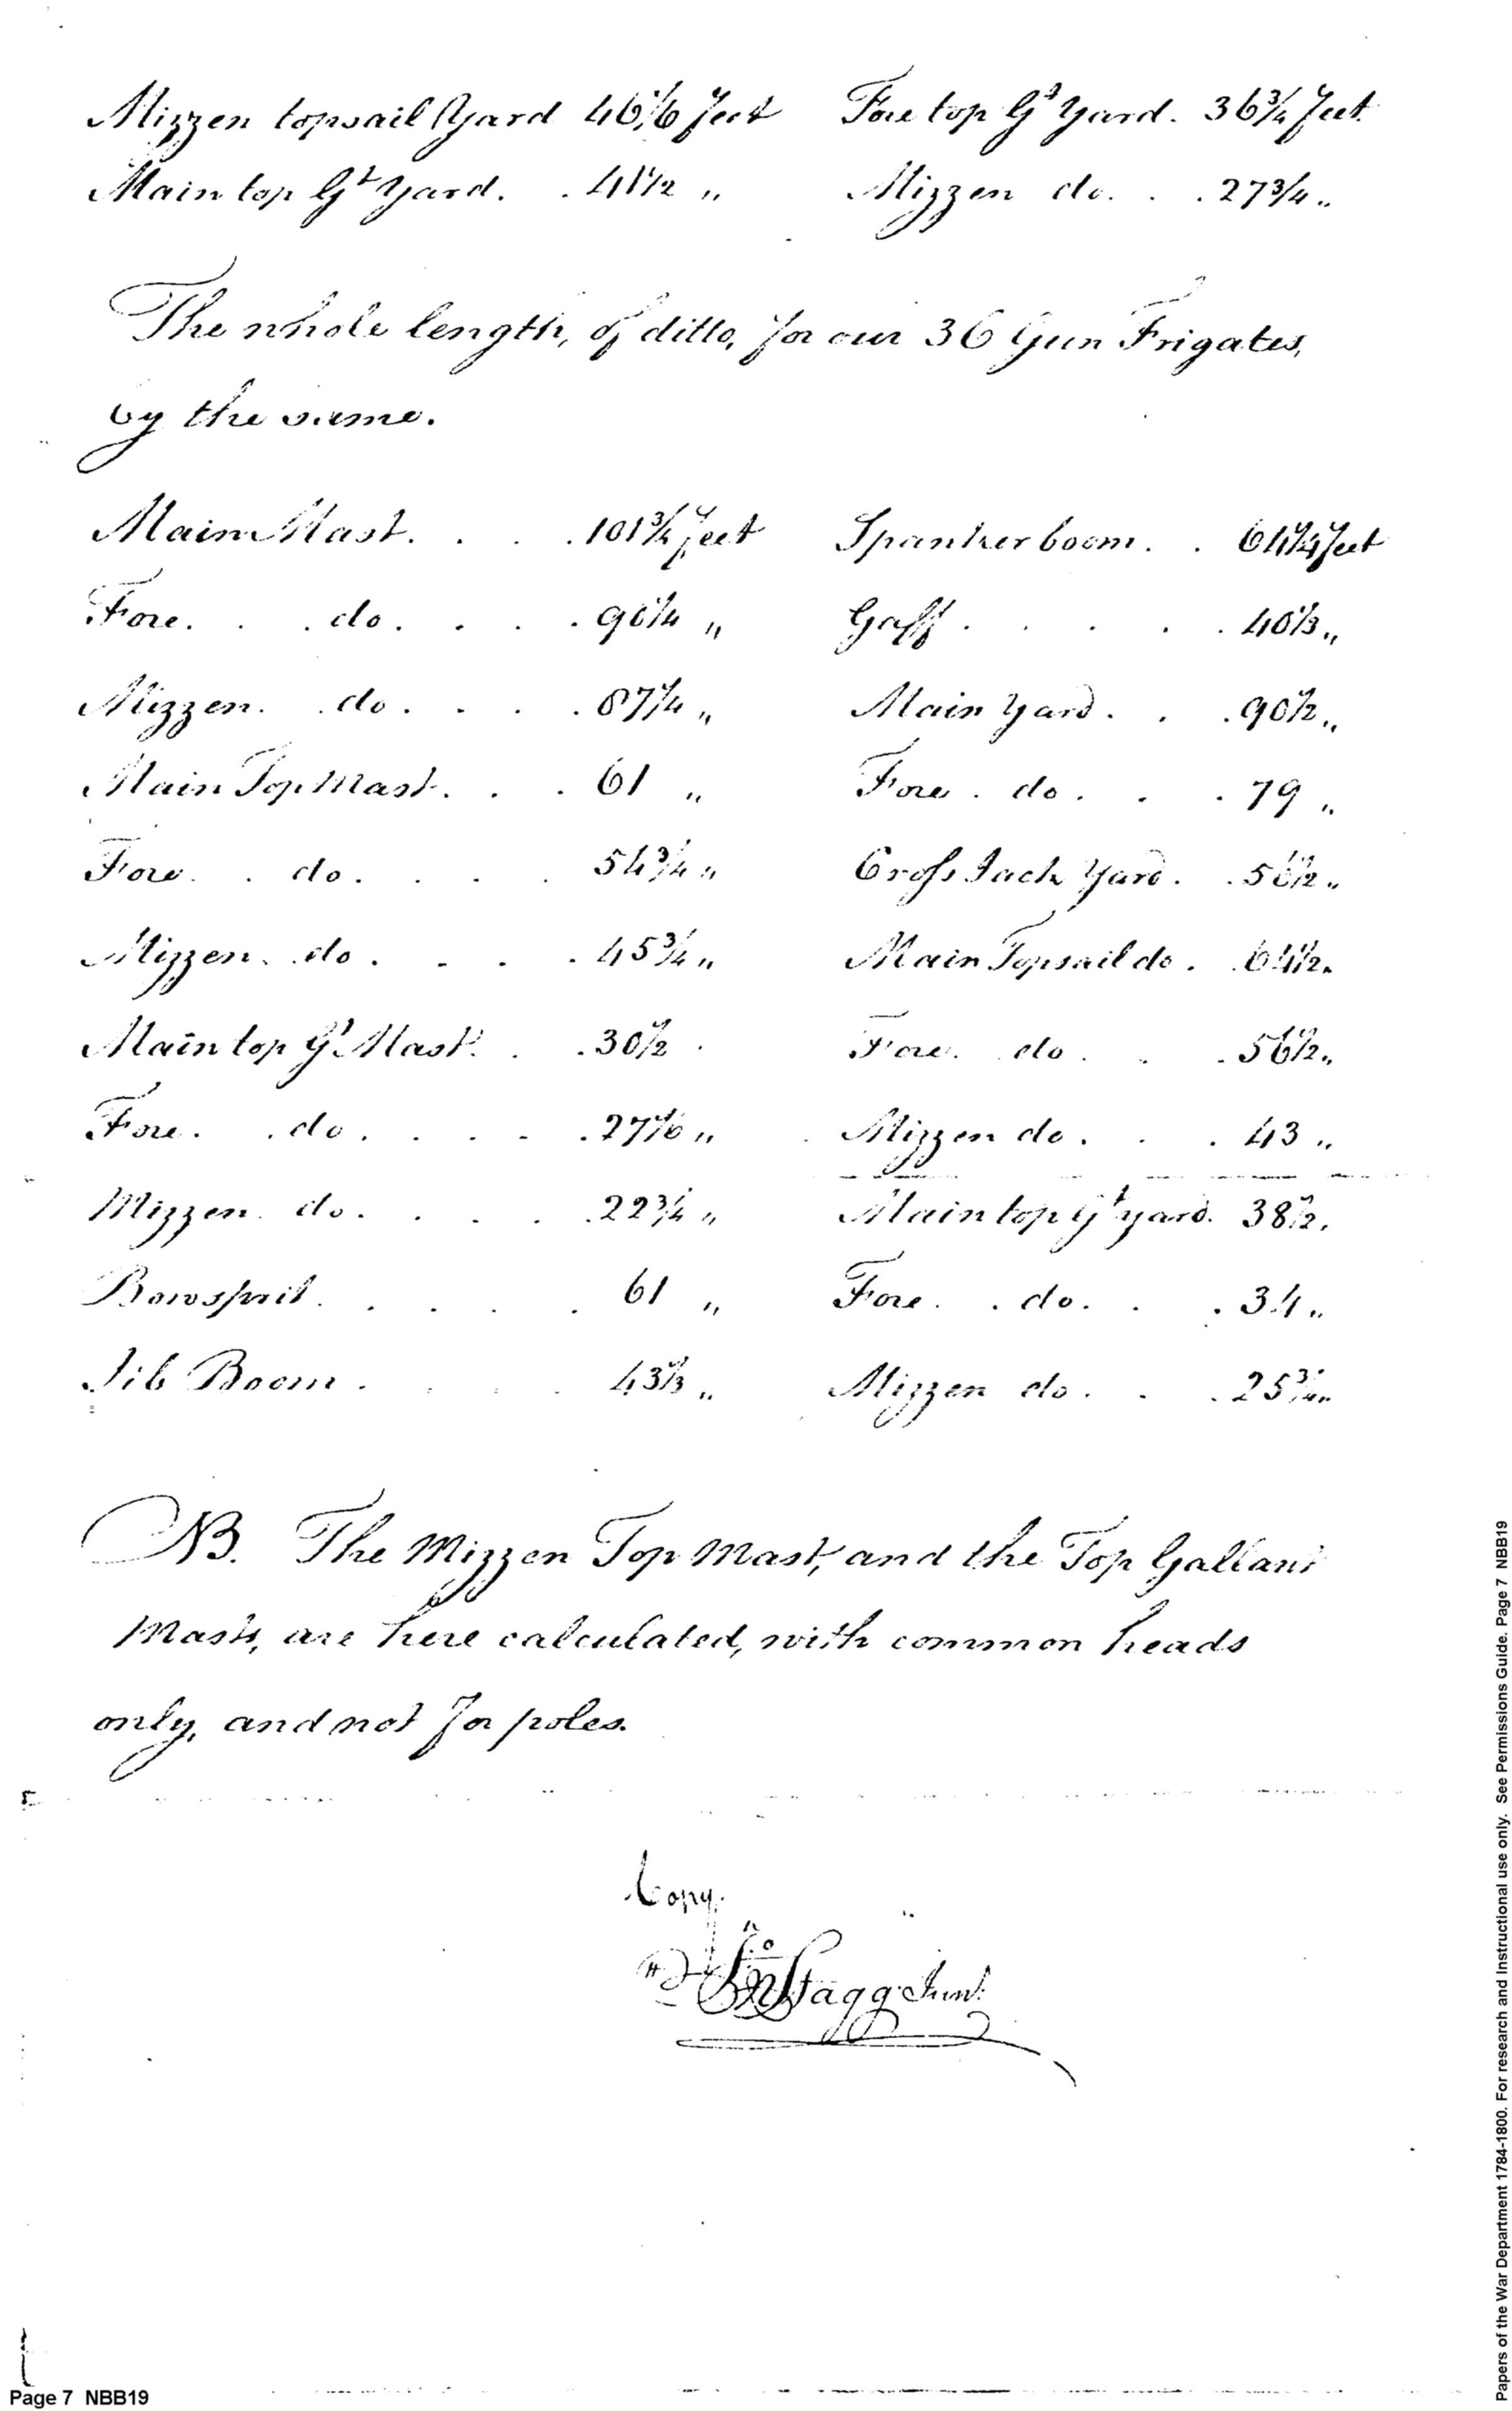 Mizzen topsail Yard 46 1/6 feet Fore top Gt Yard. 36 3/4 feet
Main top Gt Yard. . 41 1/2 " Mizzen do. . . 27 3/4 "
The whole length, of ditto, for our 36 Gun Frigates,
by the same.
Main Mast. . . . 101 3/4 feet Spanker boom. . feet
Fore. . . do. . . . . " Gaff . . . . . 40 1/3 "
Mizzen. . do. . . . 87 1/4 " Main Yard . . . 90 1/2 "
Main Top Mast. . . . 61 " Fore . do . . . 79 "
Fore. . do. . . . 54 3/4 " Cross Jack Yard. . "
Mizzen. . do . . . . 45 3/4 " Main Topsail do . . 64 1/2 "
Main top Gt Mast. . . 30 1/2 . Fore. . do . . . 56 1/2 "
Fore. . do. . . . . " Mizzen do . . . 43 "
Mizzen. do. . . . . 22 3/4 " Main top Gt yard. 38 1/2 "
Bowsprit. . . . . 61 " Fore. . do. . . 34 "
Jib Boom . . . . 43 1/3 " Mizzen do . . . 25 3/4 "
NB. The Mizzen Top Mast, and the Top Gallant
Masts, are here calculated, with common heads
only, and not for poles.
Copy.
Jno Stagg Junr.
Page 7 NBB19
Papers of the War Department 1784-1800. For research and Instructional use only. See Permissions Guide. Page 7 NBB19